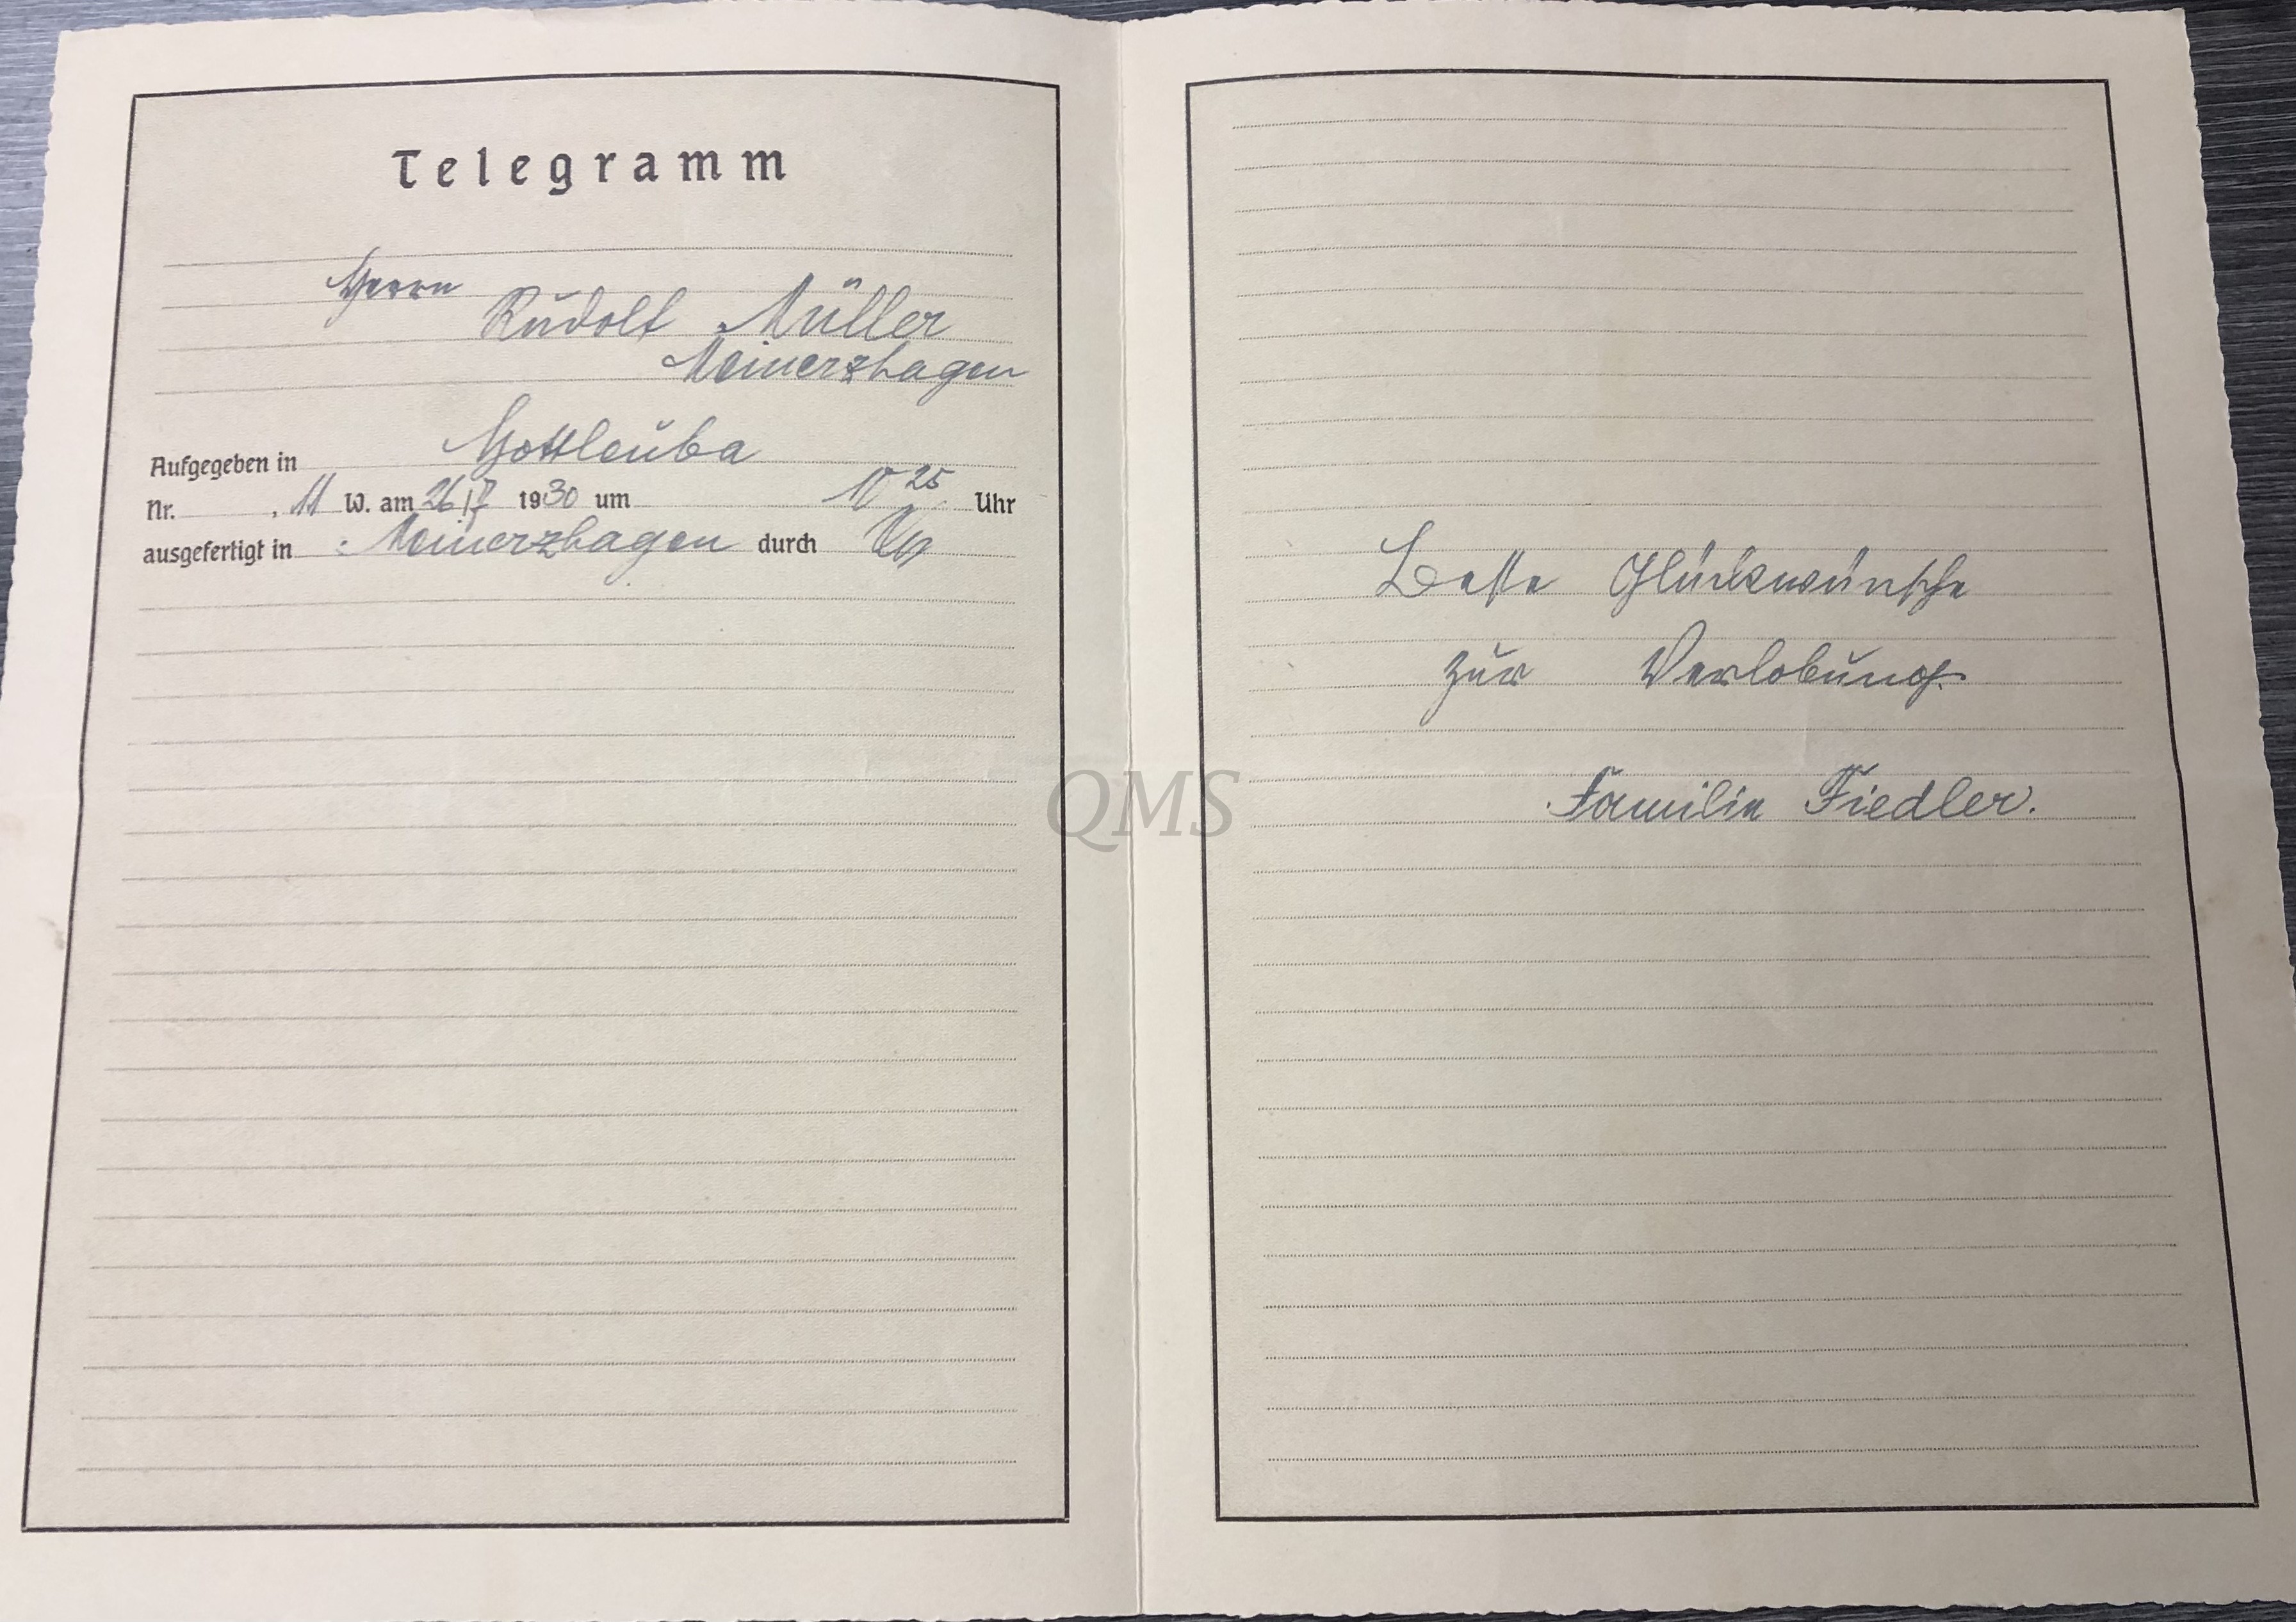 Telegramm
Herrn
Rudolf Müller
Meinerzhagen
Aufgegeben in Gottleuba
Nr. , 11 W. am 26/7 1930 um 10 25 Uhr
ausgefertigt in Meinerzhagen durch
Beste Glückwünsche
zur Verlobung.
Familie Fiedler.
QMS